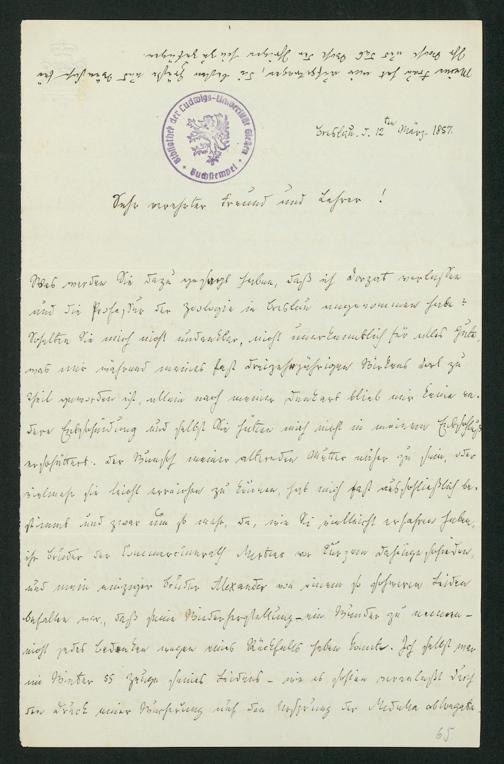 Breslau d. 12ten März 1857.
Bibliothek der Ludwigs-Universität Giessen
Buchstempel
Sehr verehrter Freund und Lehrer!
Was werden Sie dazu gesagt haben, daß ich Dorpat verlassen
und die Professur der Zoologie in Breslau angenommen habe?
Schelten Sie mich nicht undankbar, nicht unerkenntlich für alles Gute,
was mir während meines fast dreizehnjährigen Wirkens dort zu
Theil geworden ist, allein nach meiner Denkart blieb mir keine an-
dere Entscheidung und selbst Sie hätten mich nicht in meinem Entschluß
erschüttert. Der Wunsch meiner alternden Mutter näher zu sein, oder
vielmehr sie leicht erreichen zu können, hat mich fast ausschließlich be-
stimmt und zwar um so mehr, da, wie Sie vielleicht erfahren haben,
ihr Bruder der Commercienrath Mertens vor Kurzem dahingeschieden,
und mein einziger Bruder Alexander von einem so schweren Leiden
befallen war, daß seine Wiederherstellung – ein Wunder zu nennen –
nicht jedes Bedenken wegen eines Rückfalls heben konnte. Ich selbst war
im Winter 55 Zeuge seines Leidens – wie es schien veranlaßt durch
den Druck einer Wucherung auf den Ursprung der Medulla oblongata.
65
Meine Frau hat mir aufgetragen, die besten Grüße und Wünsche für
Sie